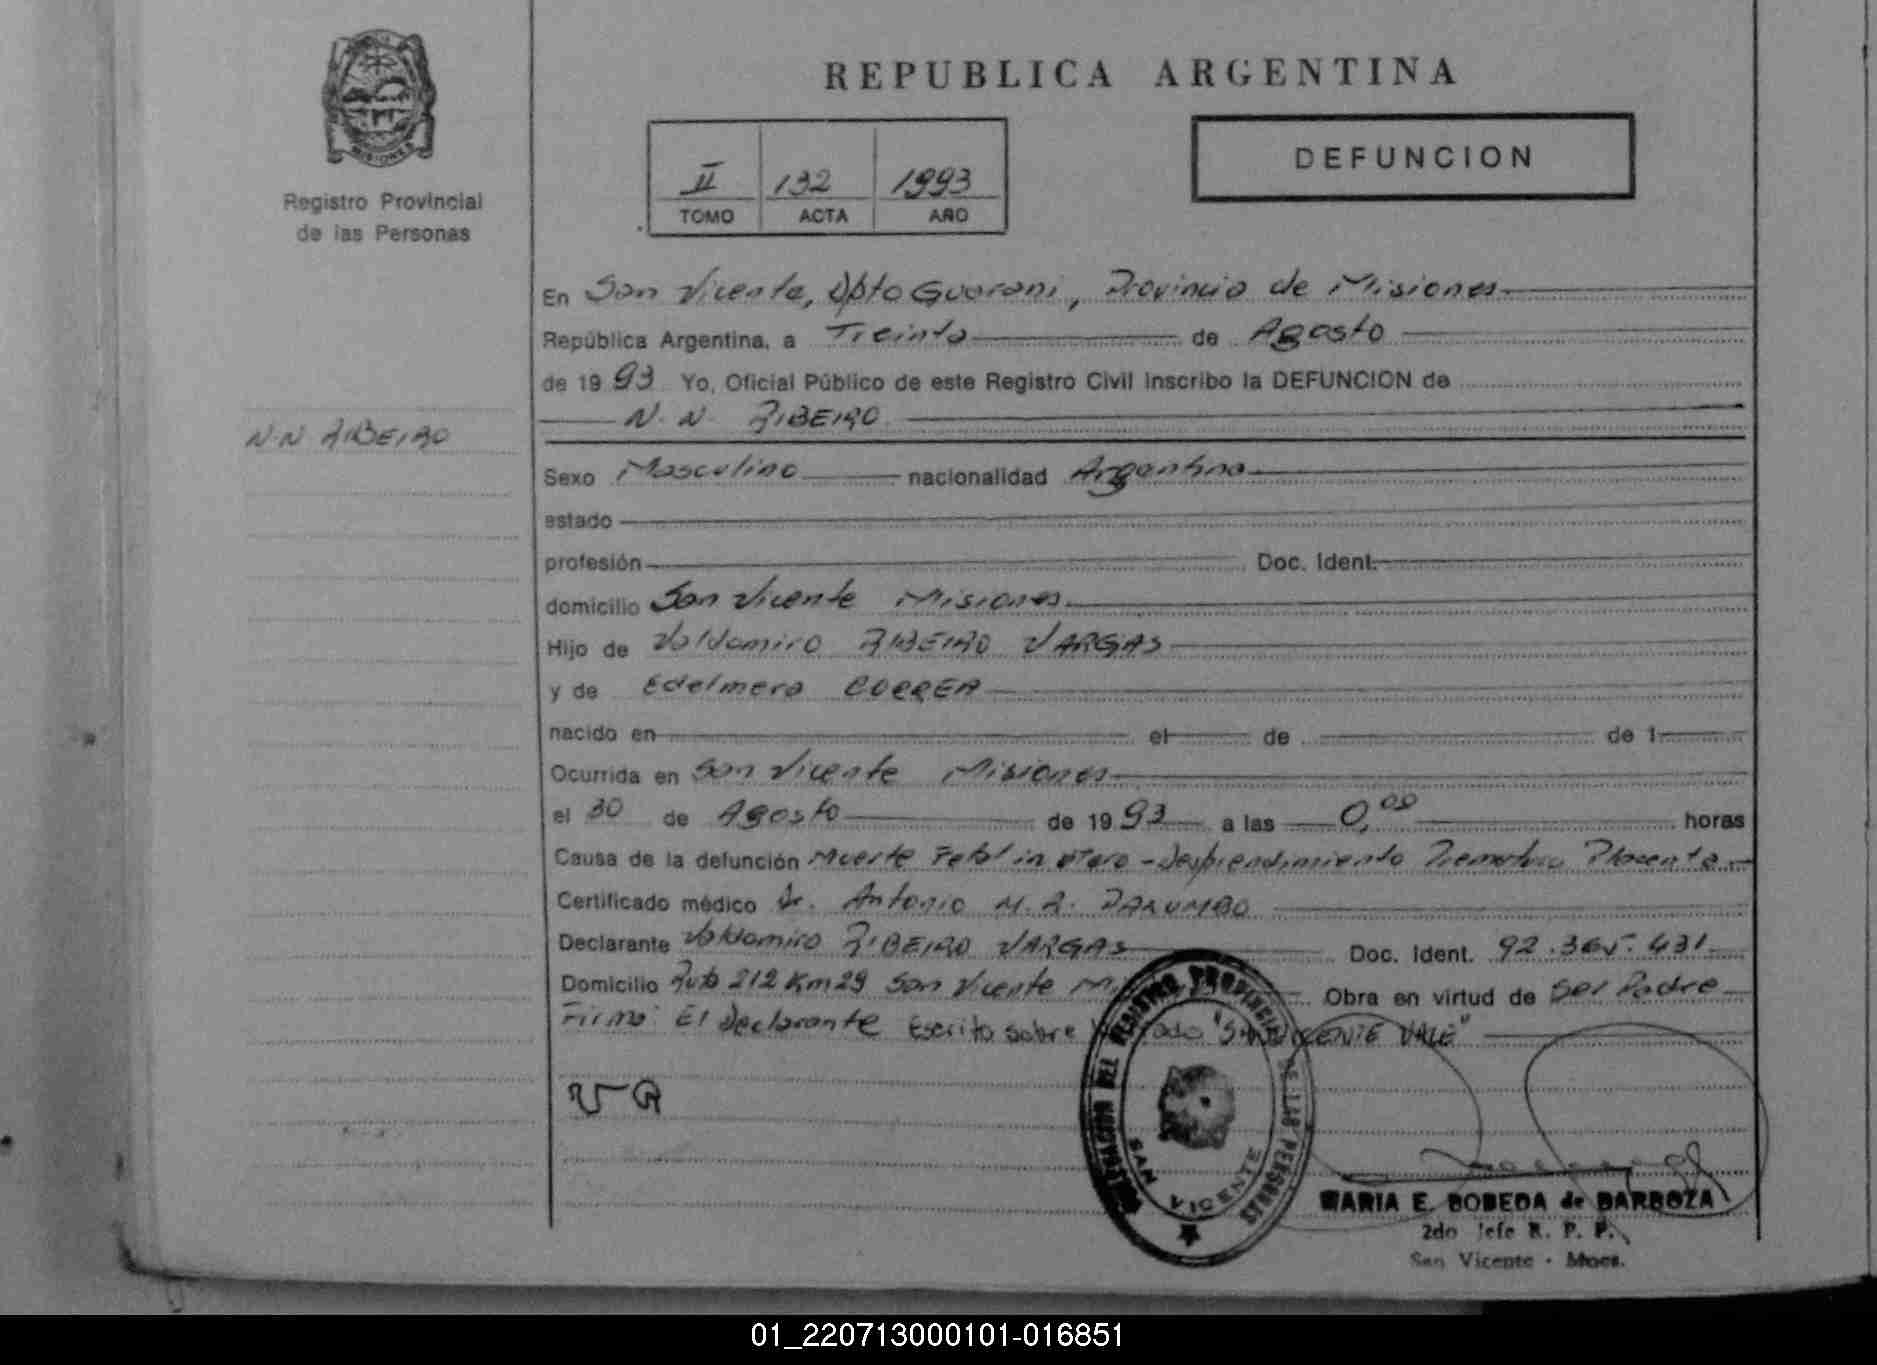 MISIONES
Registro Provincial
de las Personas
N.N RIBEIRO
REPUBLICA ARGENTINA
II 132 1993
TOMO ACTA AÑO
DEFUNCION
En San Vicente, Dpto Guarani, Provincia de Misiones
República Argentina, a Treinta de Agosto
de 1993 Yo, Oficial Público de este Registro Civil inscribo la DEFUNCION de
N. N. RIBEIRO
Sexo Masculino nacionalidad Argentina
estado
profesión Doc. Ident.
domicilio San Vicente Misiones
Hijo de Valdomiro RIBEIRO VARGAS
y de Edelmera CORREA
nacido en el de de 1
Ocurrida en San Vicente Misiones
el 30 de Agosto de 1993 a las 0,00 horas
Causa de la defunción Muerte Fetal in utero - Desprendimiento Prematuro Placenta
Certificado médico Dr. Antonio M. R.
Declarante Valdomiro RIBEIRO VARGAS Doc. Ident. 92.365.431
Domicilio Ruta 212 Km 29 San Vicente Obra en virtud de Ser Padre
Firma: El Declarante Escrito sobre "SAN VICENTE VALE"
VR
DEL REGISTRO PROVINCIAL DE LAS PERSONAS
SAN VICENTE
MARIA E. BOBEDA de BARBOZA
2do Jefe R. P. P.
San Vicente - Mnes.
01_220713000101-016851